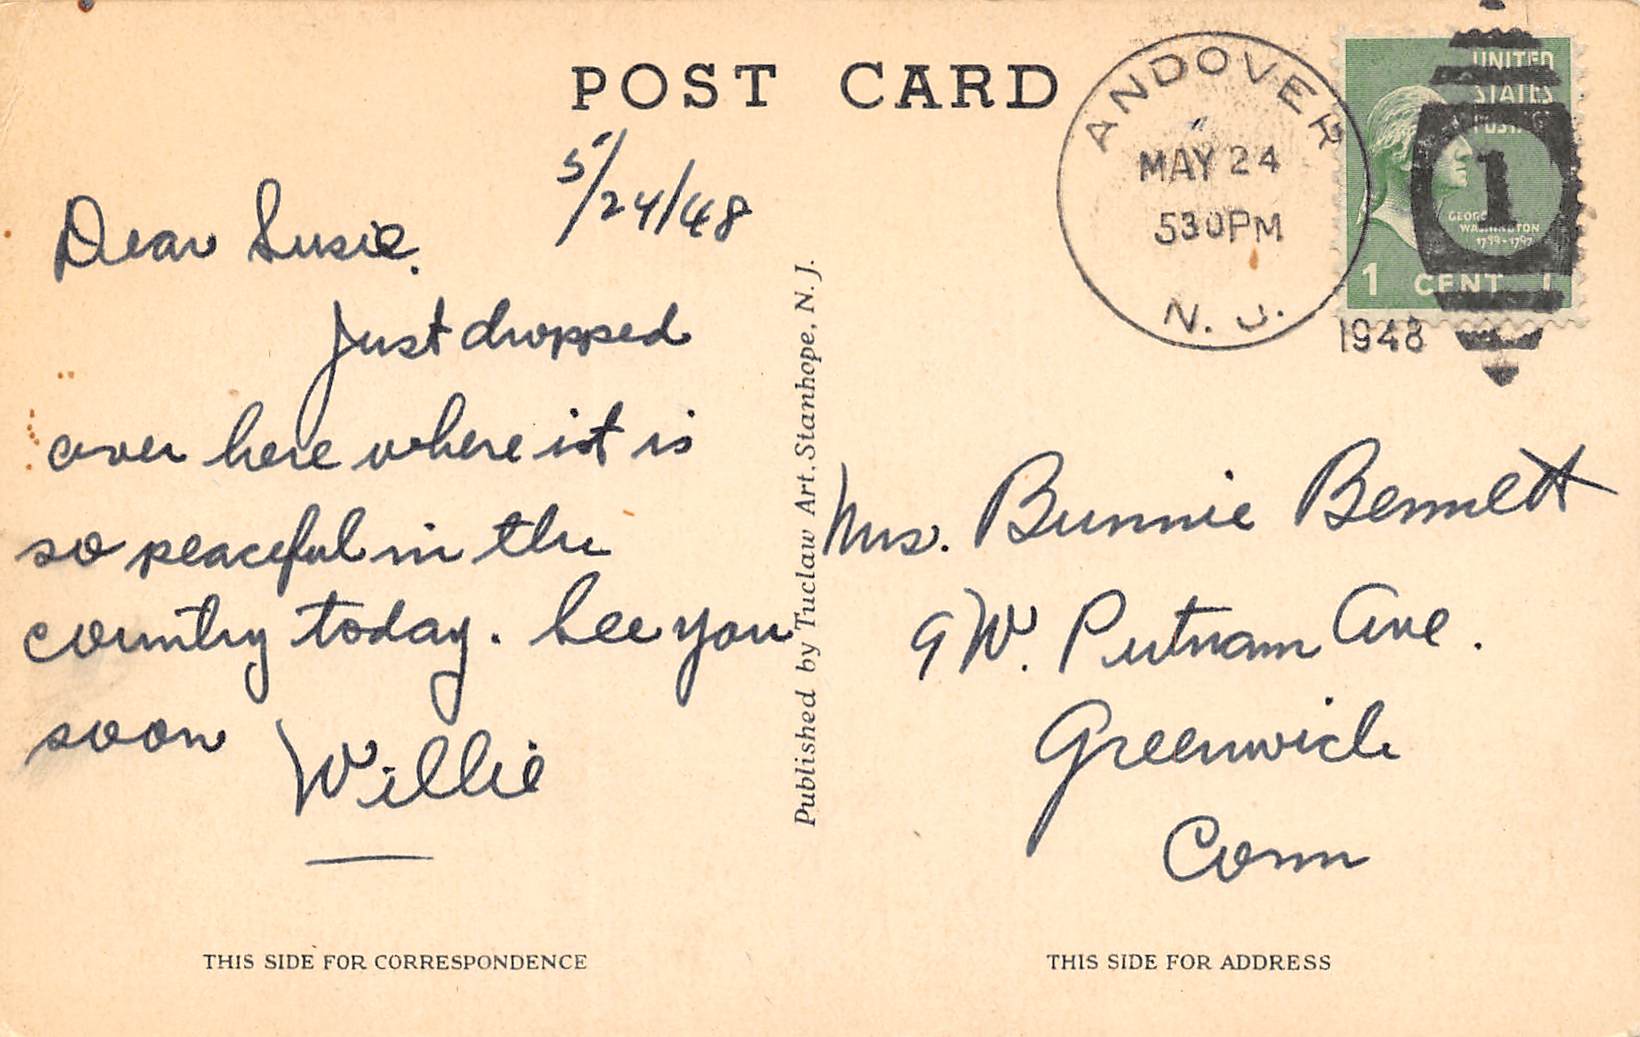 POST CARD
5/24/48
Dear Susie.
Just dropped
over here where it is
so peaceful in the
country today. See you
soon
Willie
THIS SIDE FOR CORRESPONDENCE
Published by Tuclaw Art. Stanhope, N. J.
ANDOVER
MAY 24
530PM
N. J.
1948
UNITED
STATES
POSTAGE
1
GEORGE
WASHINGTON
1789-1797
1 CENT 1
Mrs. Bunnie Bennett
9 W. Putnam Ave.
Greenwich
Conn
THIS SIDE FOR ADDRESS